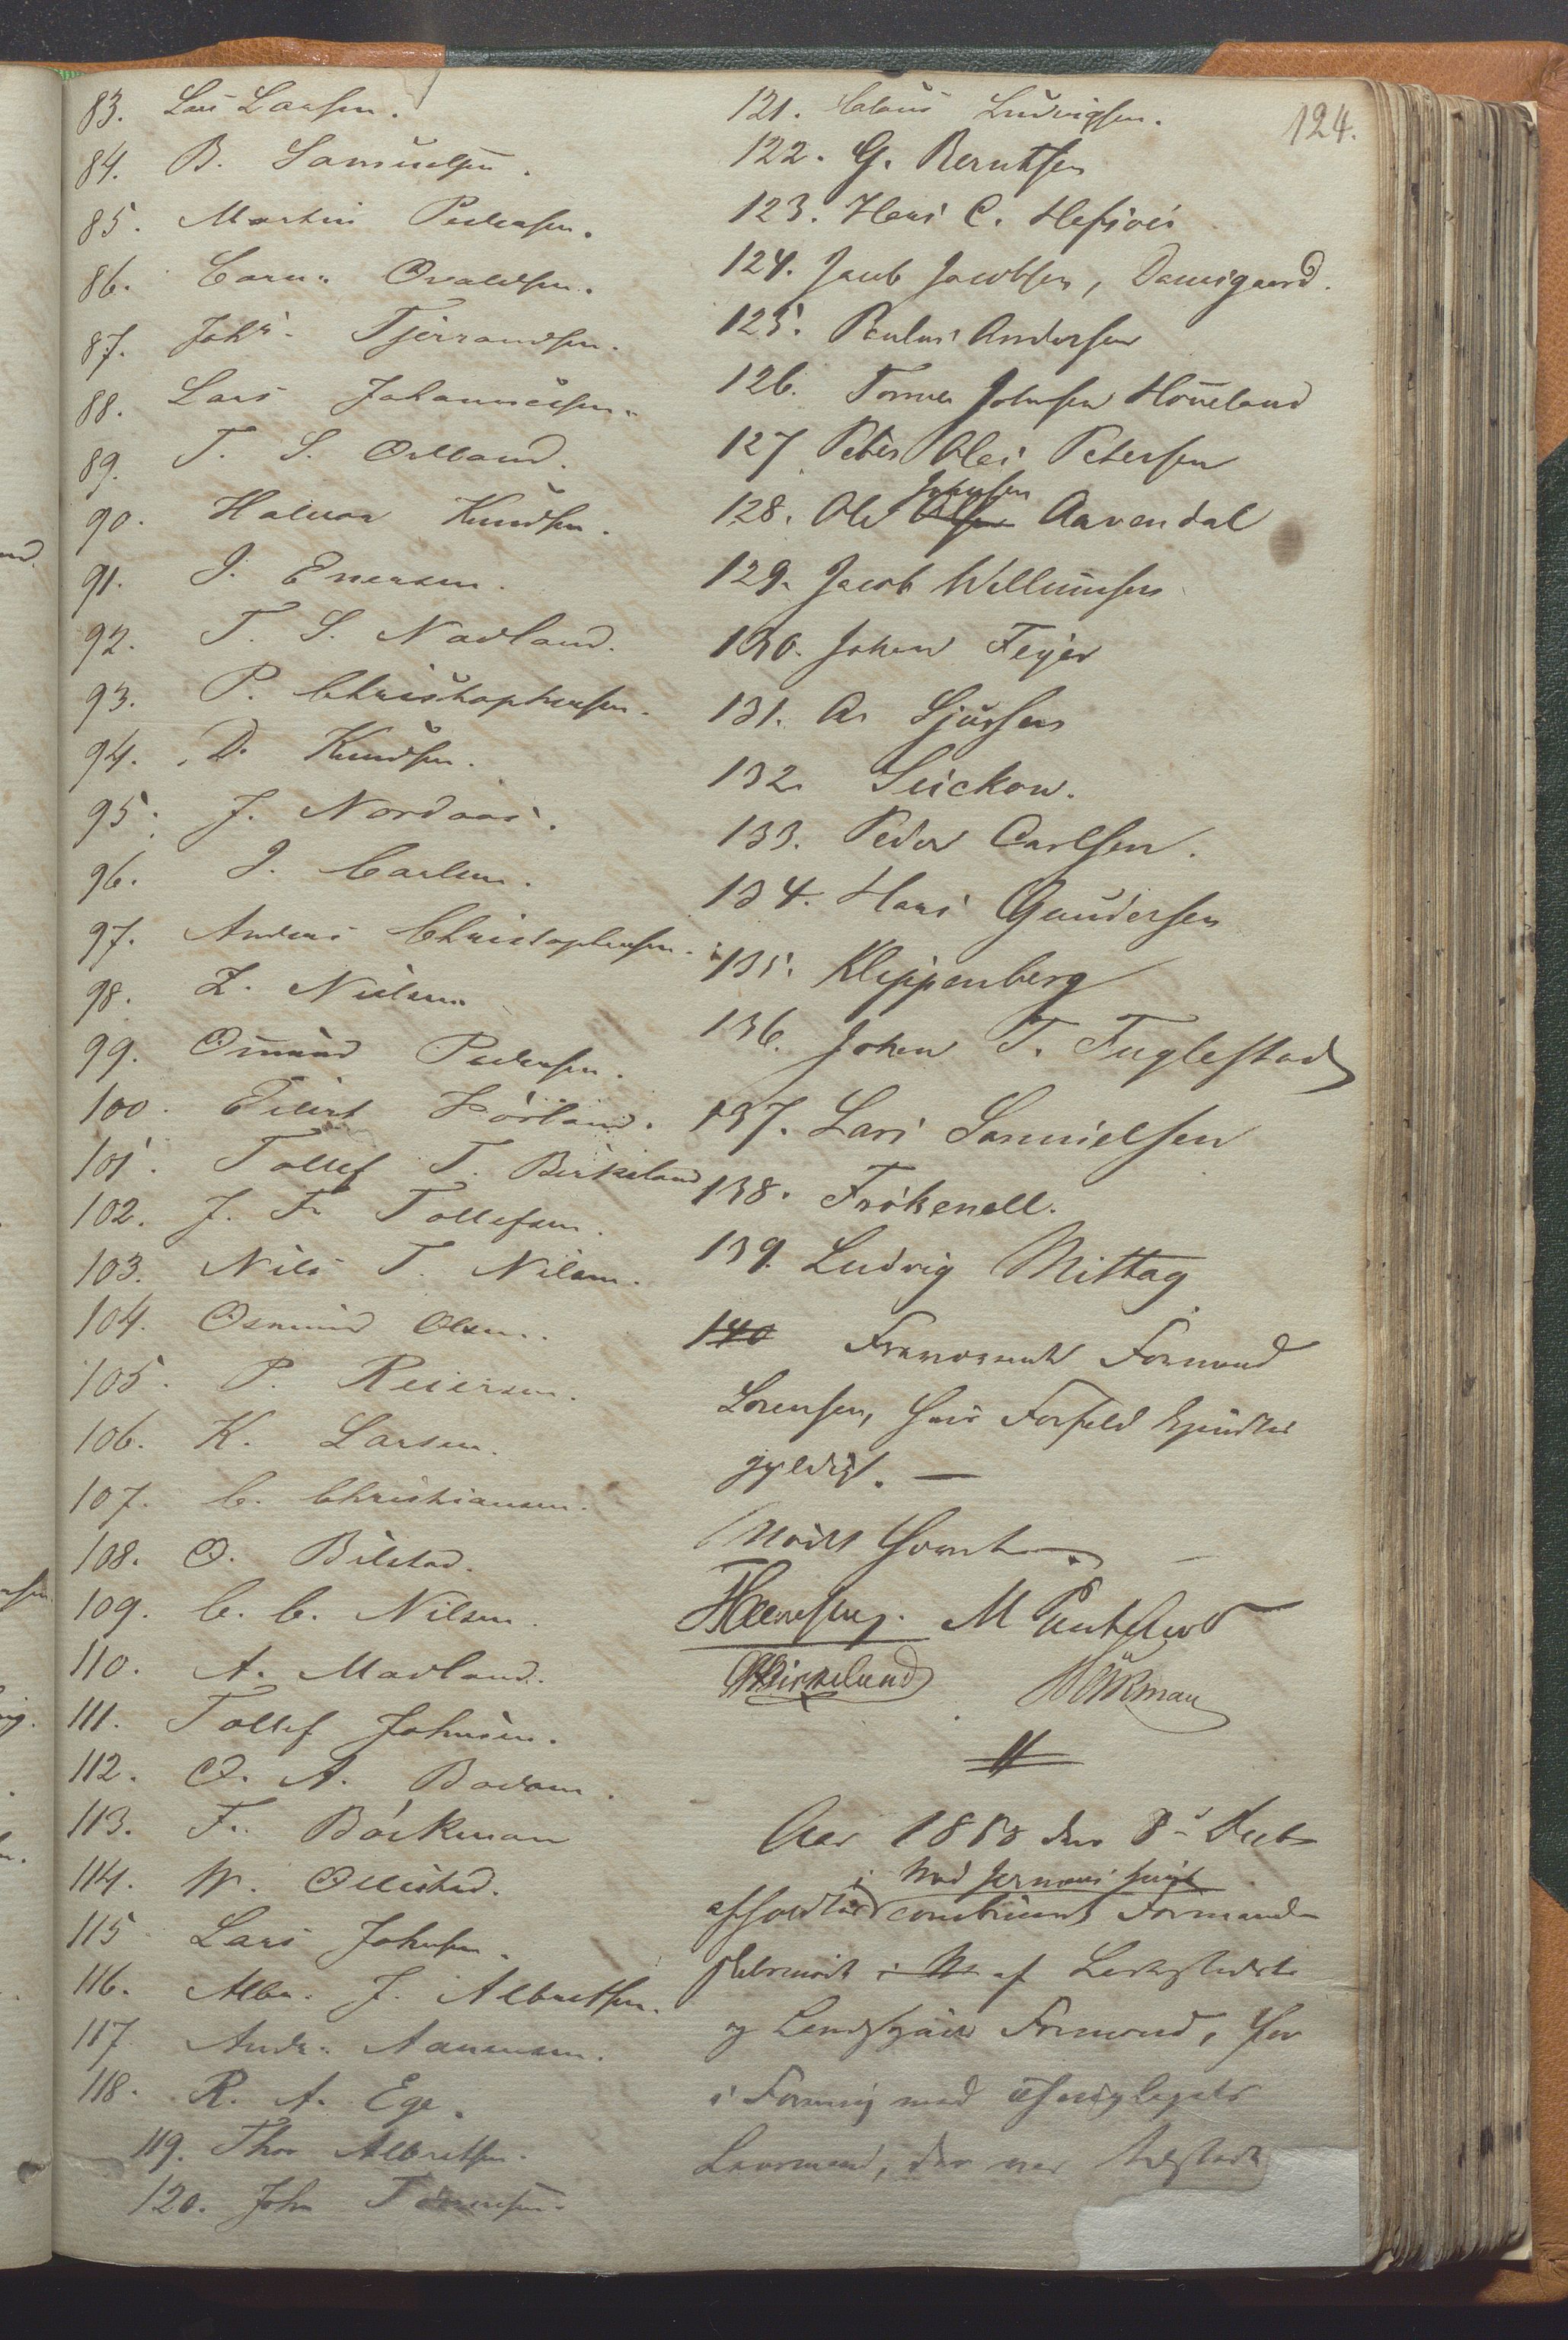 124.
83. Lars Larsen.
84. B. Samuelsen.
85. Martin Pedersen.
86. Corn: Osvaldsen.
87. Joh: Tjerrandsen.
88. Lars Johannessen.
89. T. S. Orlland.
90. Halvor Knudsen.
91. I. Enersen.
92. T. S. Nadland.
93. P. Christophersen.
94. D. Knudsen.
95. J. Nordaas.
96. I. Carlsen.
97. Anders Christophersen.
98. Z. Nielsen
99. Omund Pedersen.
100. Eilert Hörland.
101. Tollef T. Birkeland
102. J. Fr Tollefsen.
103. Nils T. Nilsen.
104. Osmund Olsen.
105. P. Reiersen.
106. K. Larsen.
107. C. Christiansen.
108. O. Bilstad.
109. C. C. Nilsen.
110. A. Mavland.
111. Tollef Johnsen.
112. O. A.
113. Fr. Böckman
114. W. Ollestad.
115 Lars Johnsen.
116. Albr. J. Albretsen.
117. Andr. Aanensen.
118. R. A. Ege.
119. Thor Albretsen.
120. John Tönnesen.
121. Claus Ludvigsen.
122. G. Berntsen
123. Hans C.
124. Jacob Jacobsen, Damsgaard.
125. Paulus Andersen
126. Tønnes Johnsen Höueland
127 Peter Olai Petersen
128. Ole Olsen Johnsen Aarendal
129. Jacob Willumsen
130. Johan Feyer
131. A. Sjursen
132. Suckow.
133. Peder Carlsen.
134. Hans Gaudersen
135. Kleppenberg
136. Johan T. Fuglestad
137. Lars Samuelsen
138. Frökenell.
139. Ludvig Mittag
140 Fraværende Formand
Lorensen, hvis Forfald kjendtes
gyldigt. —
Mødet hævet.
M Puntervold
Birkeland Bökman
Aar 1858 den 8de
i
afholdtes combineret Formand-
skabsmöde af Ladestedets
og Landsognets Formænd, hvor
i Forening med
Lensmand, der var tilstede